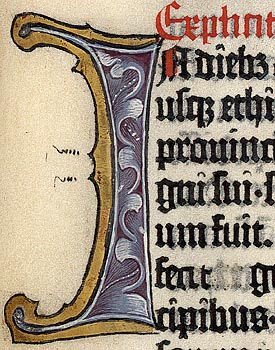 Explicit
In diebȝ
usqȝ ethi
prouinc
gni sui· s
um fuit
fecit g
cipibus·